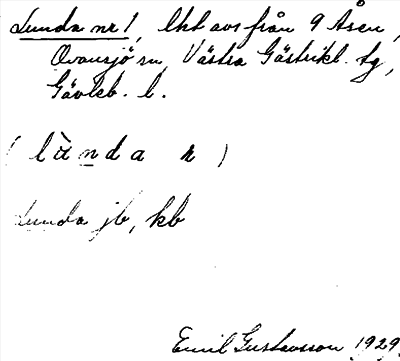 Lunda nr 1, lht avs från 9 Åsen,
Ovansjö sn, Västra Gästrikl. tg,
Gävleb. l.
( lùnda r )
Lunda jb, kb
Emil Gustavsson 1929